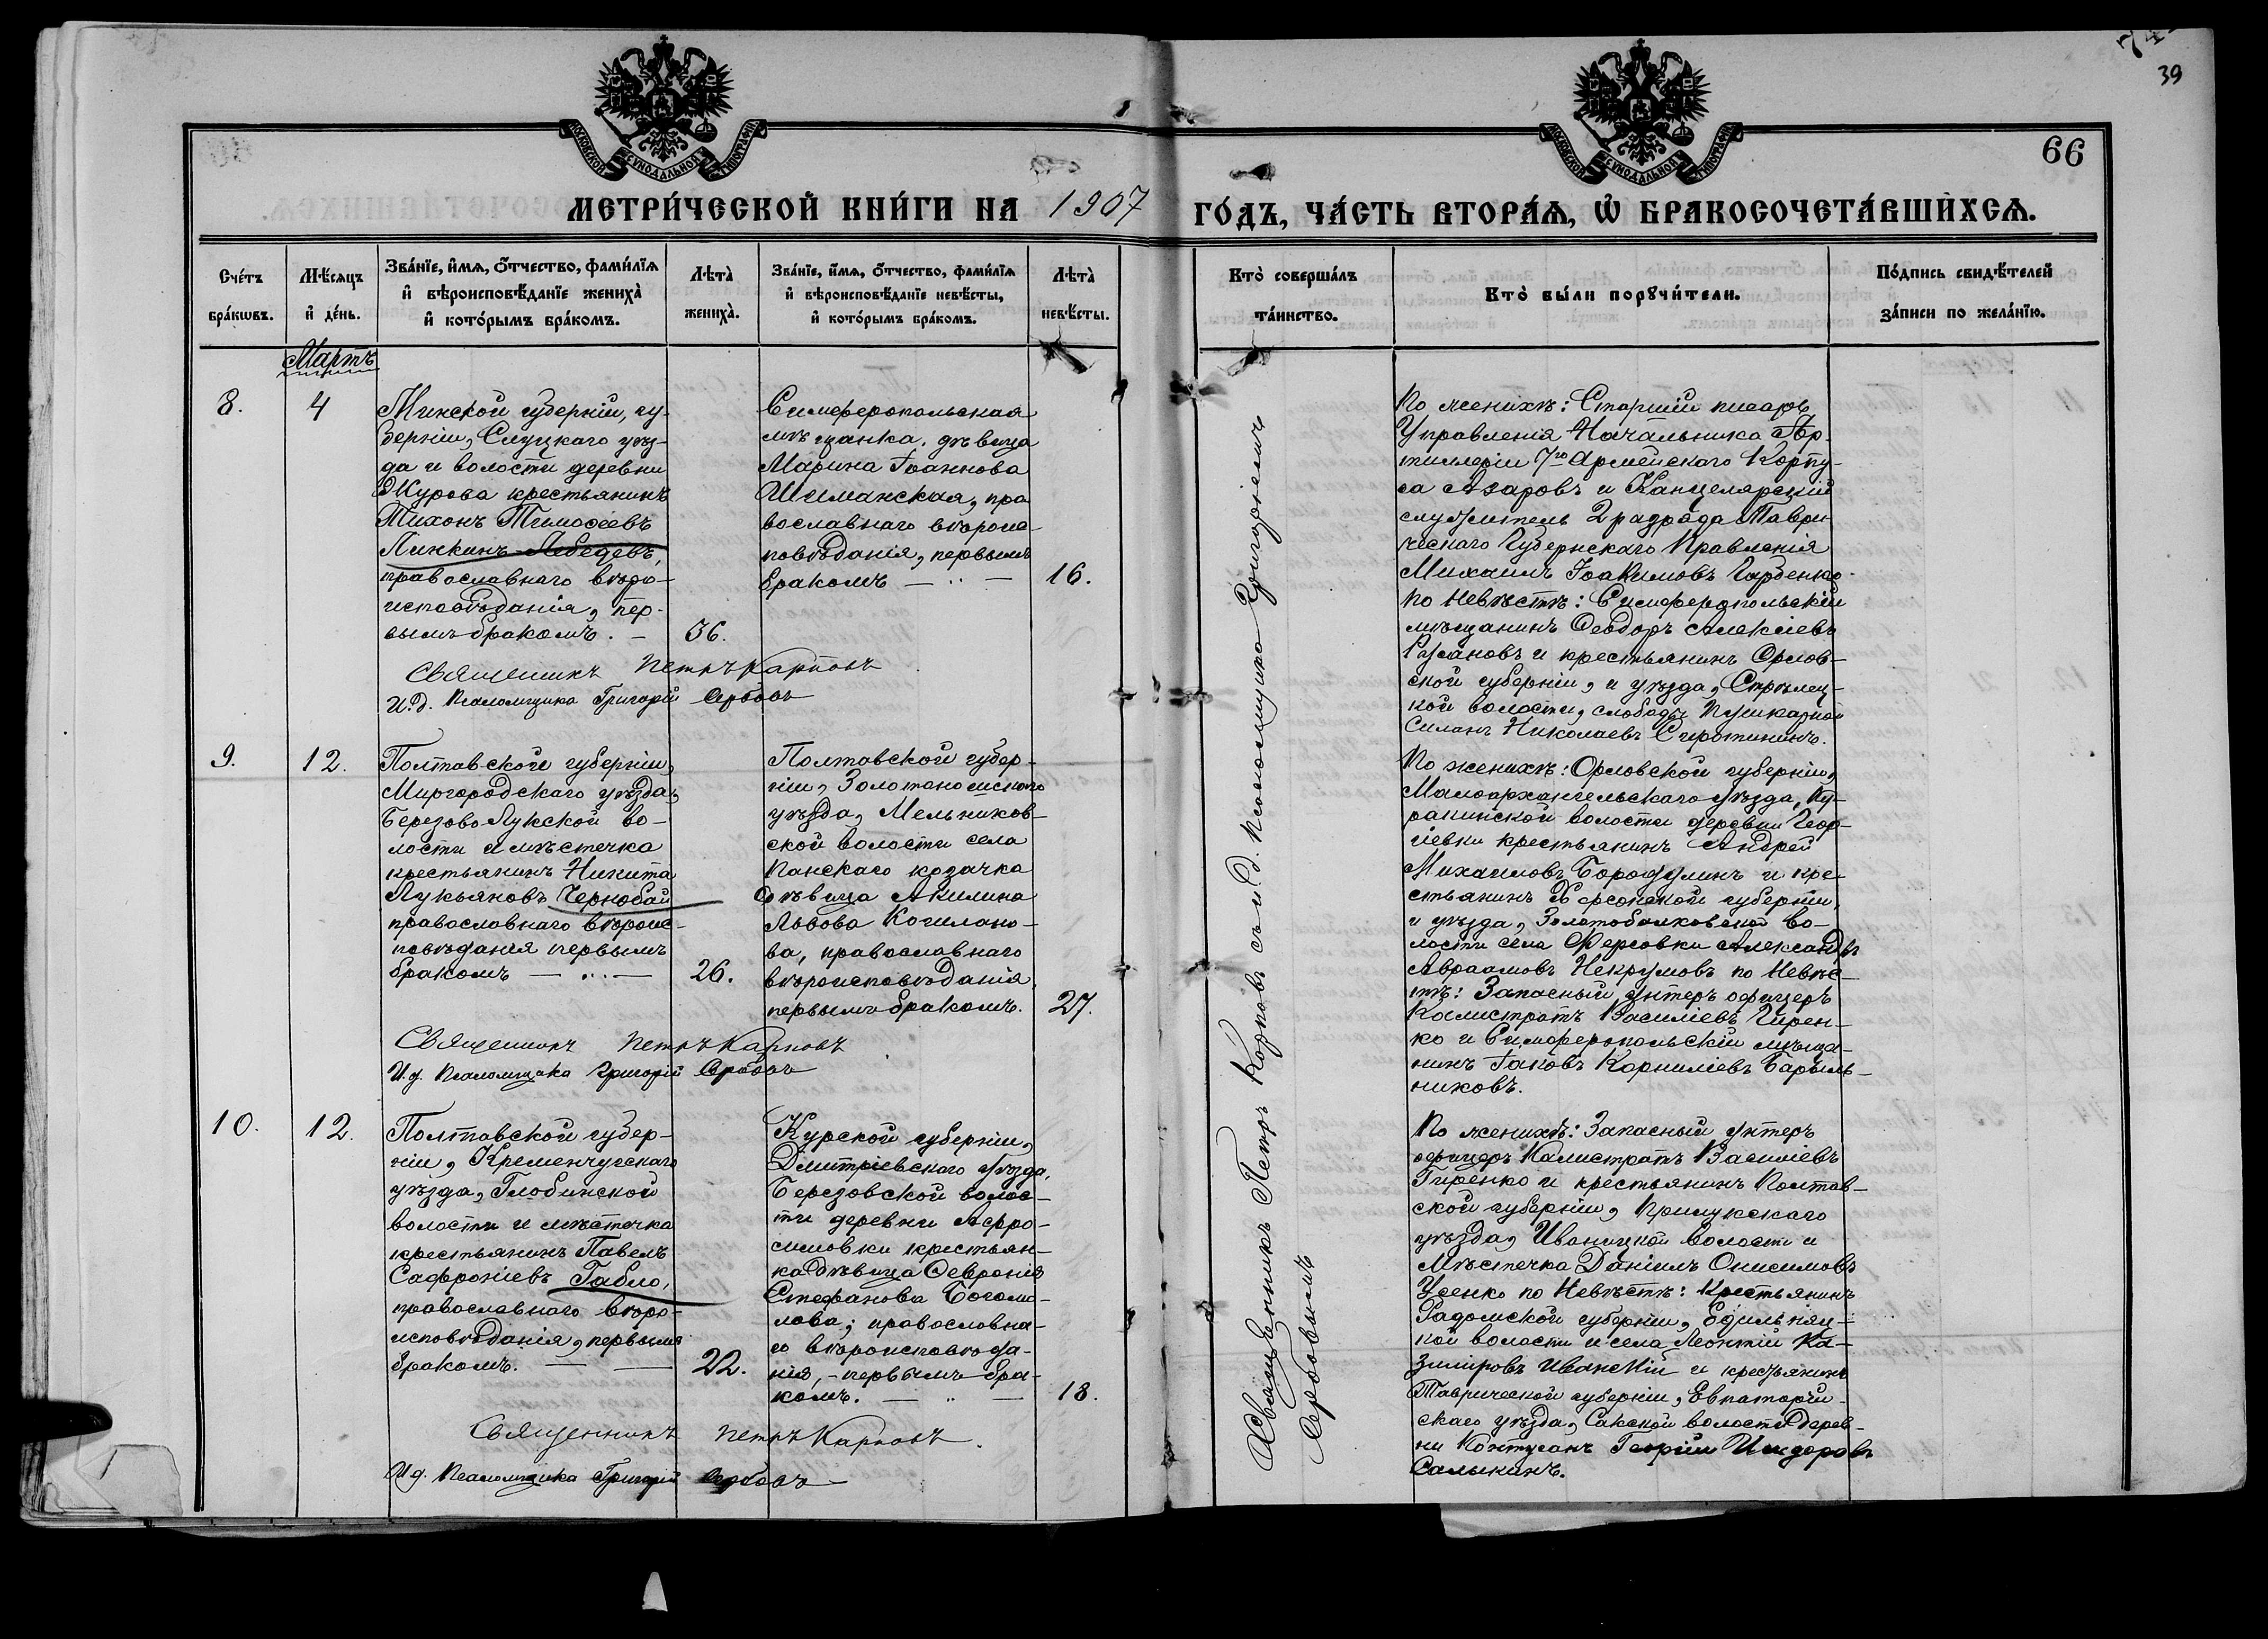 39
66
МОСКОВСКОЙ СѴНОДАЛЬНОЙ ТИПОГРАФІИ
МОСКОВСКОЙ СѴНОДАЛЬНОЙ ТИПОГРАФІИ
МЕТРИ́ЧЕСКОЙ КНИ́ГИ НА 1907 ГО́ДЪ, ЧА́СТЬ ВТОРА́Ѧ, Ѽ БРАКОСОЧЕТА́ВШИХСѦ.
Счéтъ
брáкѡвъ.
Мѣ́сѧцъ
и҆ дéнь.
Звáнїе, и҆́мѧ, ѻ҆́тчество, фамѝлїѧ
и҆ вѣроисповѣ́данїе женихà
и҆ котóрымъ брáкомъ.
Лѣтà
женихà.
Звáнїе, и҆́мѧ, ѻ҆́тчество, фамѝлїѧ
и҆ вѣроисповѣ́данїе невѣ́сты,
и҆ котóрымъ брáкомъ.
Лѣтà
невѣ́сты.
Ктò совершáлъ
тáинство.
Ктò бы́ли порꙋчи́тели.
Пóдпись свидѣ́телей
зáписи по желáнїю.
Мартъ
8.
4
Минской губерніи, гу-
берніи, Слуцкаго уѣз-
да и волости деревни
Журова крестьянинъ
Тихонъ Тимоѳеевъ
Линкинъ-Лебедевъ,
православнаго вѣро-
исповѣданія, пер-
вымъ бракомъ. —
36.
Симферопольская
мѣщанка, дѣвица
Марина Іоаннова
Шиманская, пра
вославнаго вѣроис-
повѣданія, первымъ
бракомъ —
16.
По женихѣ: Старшій писарь
Управленія Начальника Ар-
тиллеріи 7го Армейскаго Корпу-
са Азаровъ и Канцелярскій
служитель 2 разряда Таври-
ческаго Губернскаго Правленія
Михаилъ Іоакимовъ Гарбенко.
По Невѣстѣ: Симферопольскій
мѣщанинъ Ѳеодоръ Алексіевъ
Русановъ и крестьянинъ Орлов-
ской губерніи, и уѣзда, Стрѣлец-
кой волости, слободы Пушкарной
Силанъ Николаевъ Сиротининъ.
Священникъ Петръ Карповъ
И.д. Псаломщика Григорій Сербовъ
9.
12.
Полтавской губерніи,
Миргородскаго уѣзда,
Березово Лукской во-
лости и мѣстечка
крестьянинъ Никита
Лукьяновъ Чернобай
православнаго вѣроис-
повѣданія первымъ
бракомъ —
26.
Полтавской губер-
ніи, Золотоношскаго
уѣзда, Мельников-
ской волости села
Панскаго козачка
дѣвица Акилина
Львова Когилано-
ва, православнаго
вѣроисповѣданія
первымъ бракомъ.
27.
По женихѣ: Орловской губерніи,
Малоархангельскаго уѣзда, Ку-
ракинской волости деревни Геор-
гіевки крестьянинъ Андрей
Михаиловъ Бородулинъ и кре
стьянинъ Херсонской губерніи,
и уѣзда, Золотобалковской во-
лости села Фирсовки Александръ
Авраамовъ Некрумовъ по Невѣс-
тѣ: Запасный унтеръ офицеръ
Калистратъ Василіевъ Гирен-
ко и Симферопольскій мѣща-
нинъ Іаковъ Корниліевъ Барыль-
никовъ.
Священникъ Петръ Карповъ
И.д. Псаломщика Григорій Сербовъ
10.
12.
Полтавской губер-
ніи, Кременчугскаго
уѣзда, Глобинской
волости и мѣстечка
крестьянинъ Павелъ
Сафроніевъ Габло,
православнаго вѣро-
исповѣданія, первымъ
бракомъ. —
22.
Курской губерніи,
Дмитріевскаго уѣзда,
Березовской волос-
ти деревни Аефро-
симовки крестьян-
ка дѣвица Ѳевронія
Стефанова Богомо-
лова; православна-
го вѣроисповѣда-
нія, - первымъ бра-
комъ. —
18.
По женихѣ: Запасный унтеръ
офицеръ Калистратъ Василіевъ
Гиренко и крестьянинъ Полтав-
ской губерніи, Прилукскаго
уѣзда, Иваницкой волости и
Мѣстечка Даніилъ Онисимовъ
Усенко по Невѣстѣ: Крестьянинъ
Радомской губерніи, Едильняц-
кой волости и села Леонтій Ка-
зиміровъ Иванскій и крестьянинъ
Таврической губерніи, Евпаторій-
скаго уѣзда, Сакской волости дерев-
ни Контуганъ Георгій Исидоровъ
Салыкинъ.
Священникъ Петръ Карповъ.
И.д. Псаломщика Григорій Сербовъ
Священникъ Петръ Карповъ съ и.д. псаломщика Григоріемъ
Сербовымъ